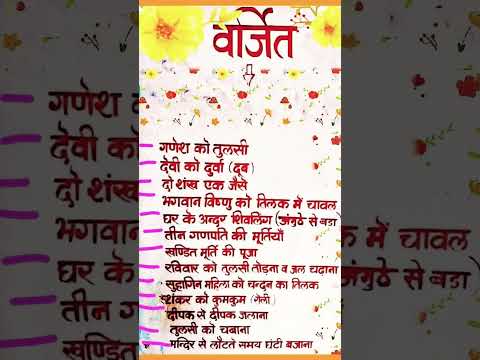 वर्जित
गणेश को तुलसी
देवी को दुर्वा (दुब)
दो शंख एक जैसे
भगवान विष्णु को तिलक में चावल
घर के अन्दर शिवलिंग (अंगुठे से बडा)
तीन गणपति की मूर्तियाँ
खण्डित मूर्ति की पूजा
रविवार को तुलसी तोड़ना व जल चढ़ाना
सुहागिन महिला को चन्दन का तिलक
शंकर को कुमकुम (रोली)
दीपक से दीपक जलाना
तुलसी को चबाना
मन्दिर से लौटते समय घंटी बजाना